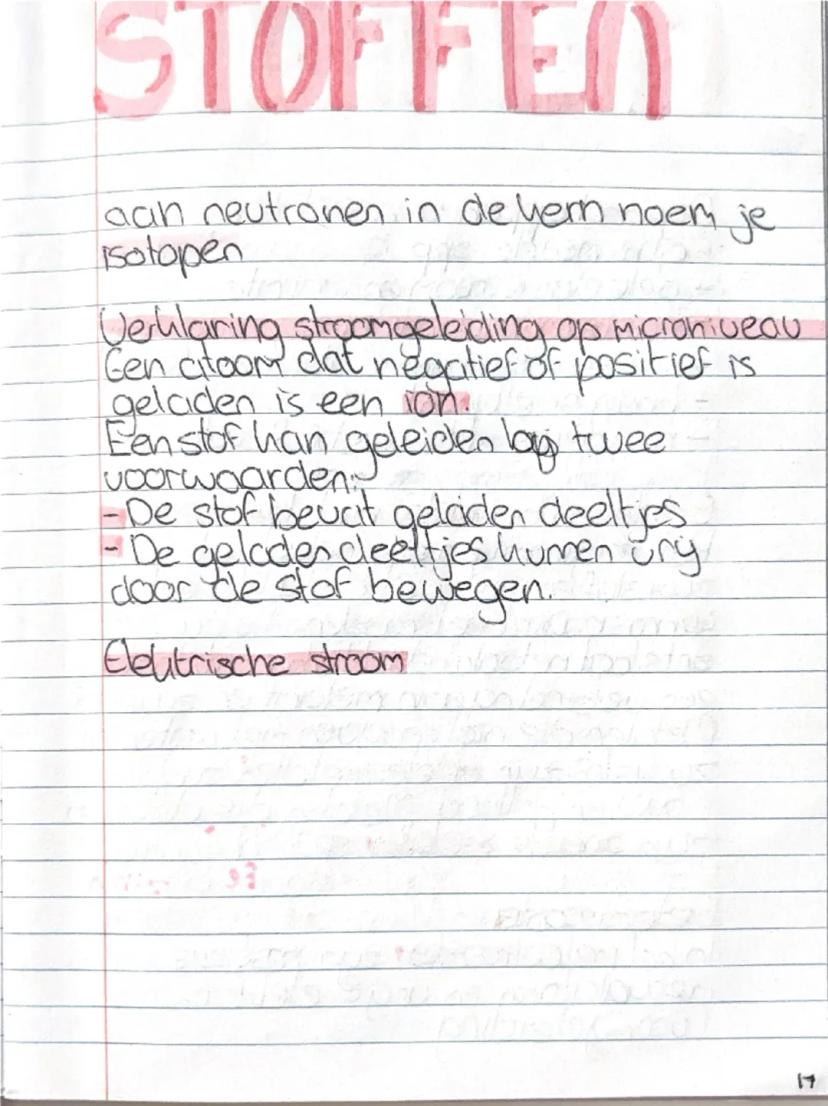 STOFFEN
aan neutronen in de kern noem je
isotopen
Verklaring stroomgeleiding op microniveau
Een atoom dat negatief of positief is
geladen is een ion.
Een stof kan geleiden bij twee
voorwaarden:
- De stof bevat geladen deeltjes
- De geladen deeltjes kunnen vrij
door de stof bewegen.
Elektrische stroom
17